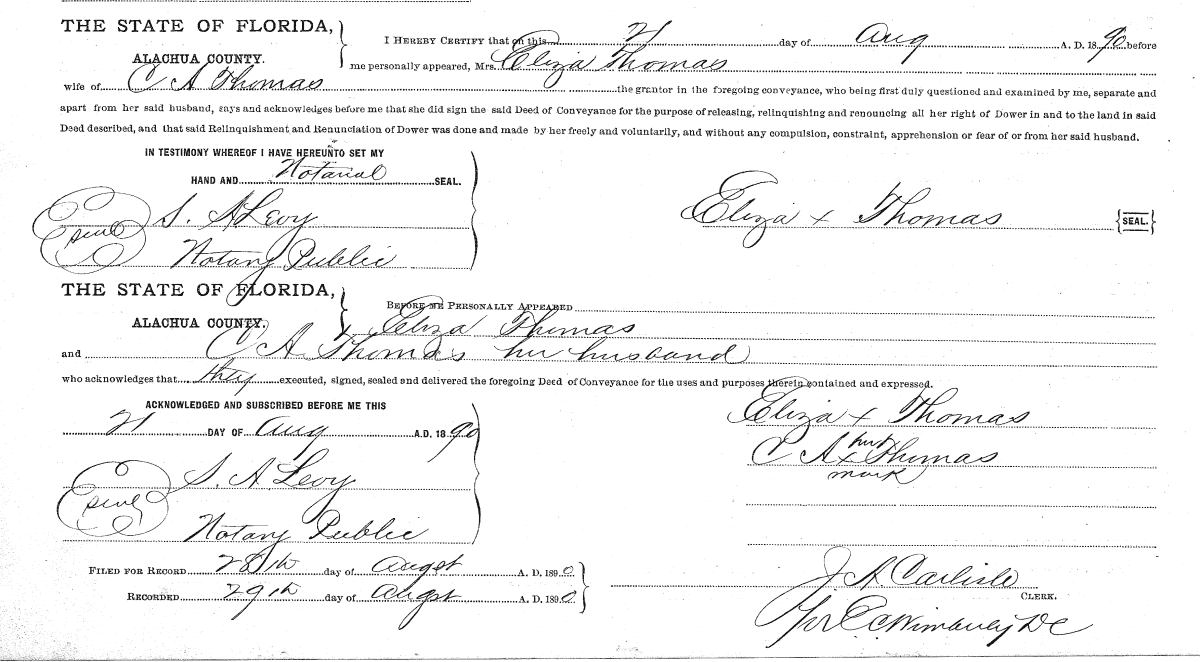 THE STATE OF FLORIDA,
ALACHUA COUNTY.
I HEREBY CERTIFY that on this 21 day of Aug A. D. 1890 before
me personally appeared, Mrs. Eliza Thomas
wife of C A Thomas the grantor in the foregoing conveyance, who being first duly questioned and examined by me, separate and
apart from her said husband, says and acknowledges before me that she did sign the said Deed of Conveyance for the purpose of releasing, relinquishing and renouncing all her right of Dower in and to the land in said
Deed described, and that said Relinquishment and Renunciation of Dower was done and made by her freely and voluntarily, and without any compulsion, constraint, apprehension or fear of or from her said husband.
IN TESTIMONY WHEREOF I HAVE HEREUNTO SET MY
HAND AND Notarial SEAL.
S. A Levy
Seal
Notary Public
Eliza x Thomas {SEAL.}
THE STATE OF FLORIDA,
ALACHUA COUNTY.
BEFORE ME PERSONALLY APPEARED
Eliza Thomas
and C A. Thomas her husband
who acknowledges that they executed, signed, sealed and delivered the foregoing Deed of Conveyance for the uses and purposes therein contained and expressed.
ACKNOWLEDGED AND SUBSCRIBED BEFORE ME THIS
21 DAY OF Aug A.D. 1890
S. A. Levy
Seal
Notary Public
Eliza x Thomas
his
C A x Thomas
mark
FILED FOR RECORD 28th day of Augst A. D. 1890
RECORDED 29th day of Augst A. D. 1890
J A Carlisle
CLERK.
Wimberly DC